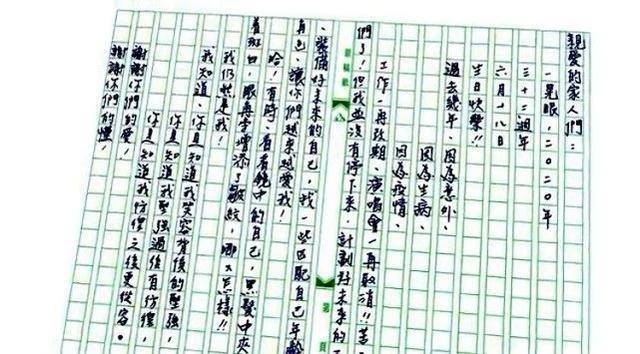 親愛的家人們：
一晃眼，二〇二〇年
三十二週年
六月十八日
生日快樂!!
過去幾年、因為意外、
因為生病、
因為疫情、
工作一再改期、演唱會一再取消!!苦了
們了！但我並沒有停下來．計劃好未來的
、裝備好未來的自己，找一些匹配自己年齡
自己．讓你們越來越愛我！
哈！有時、看看鏡中的自己，黑髮中夾
着斑白，眼角又增添了皺紋，哪又怎樣!!
我仍然是我！
我知道、你真(知道我笑容背後的堅強，
你真(知道我堅強過後有彷徨，
你真(知道我彷徨之後更從容。
謝謝你們的愛！
謝謝你們的懂！